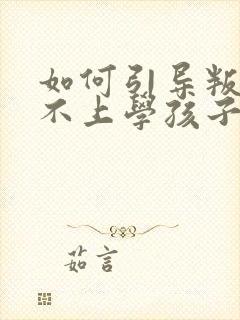 如何引导叛
不上學孩子
茹言